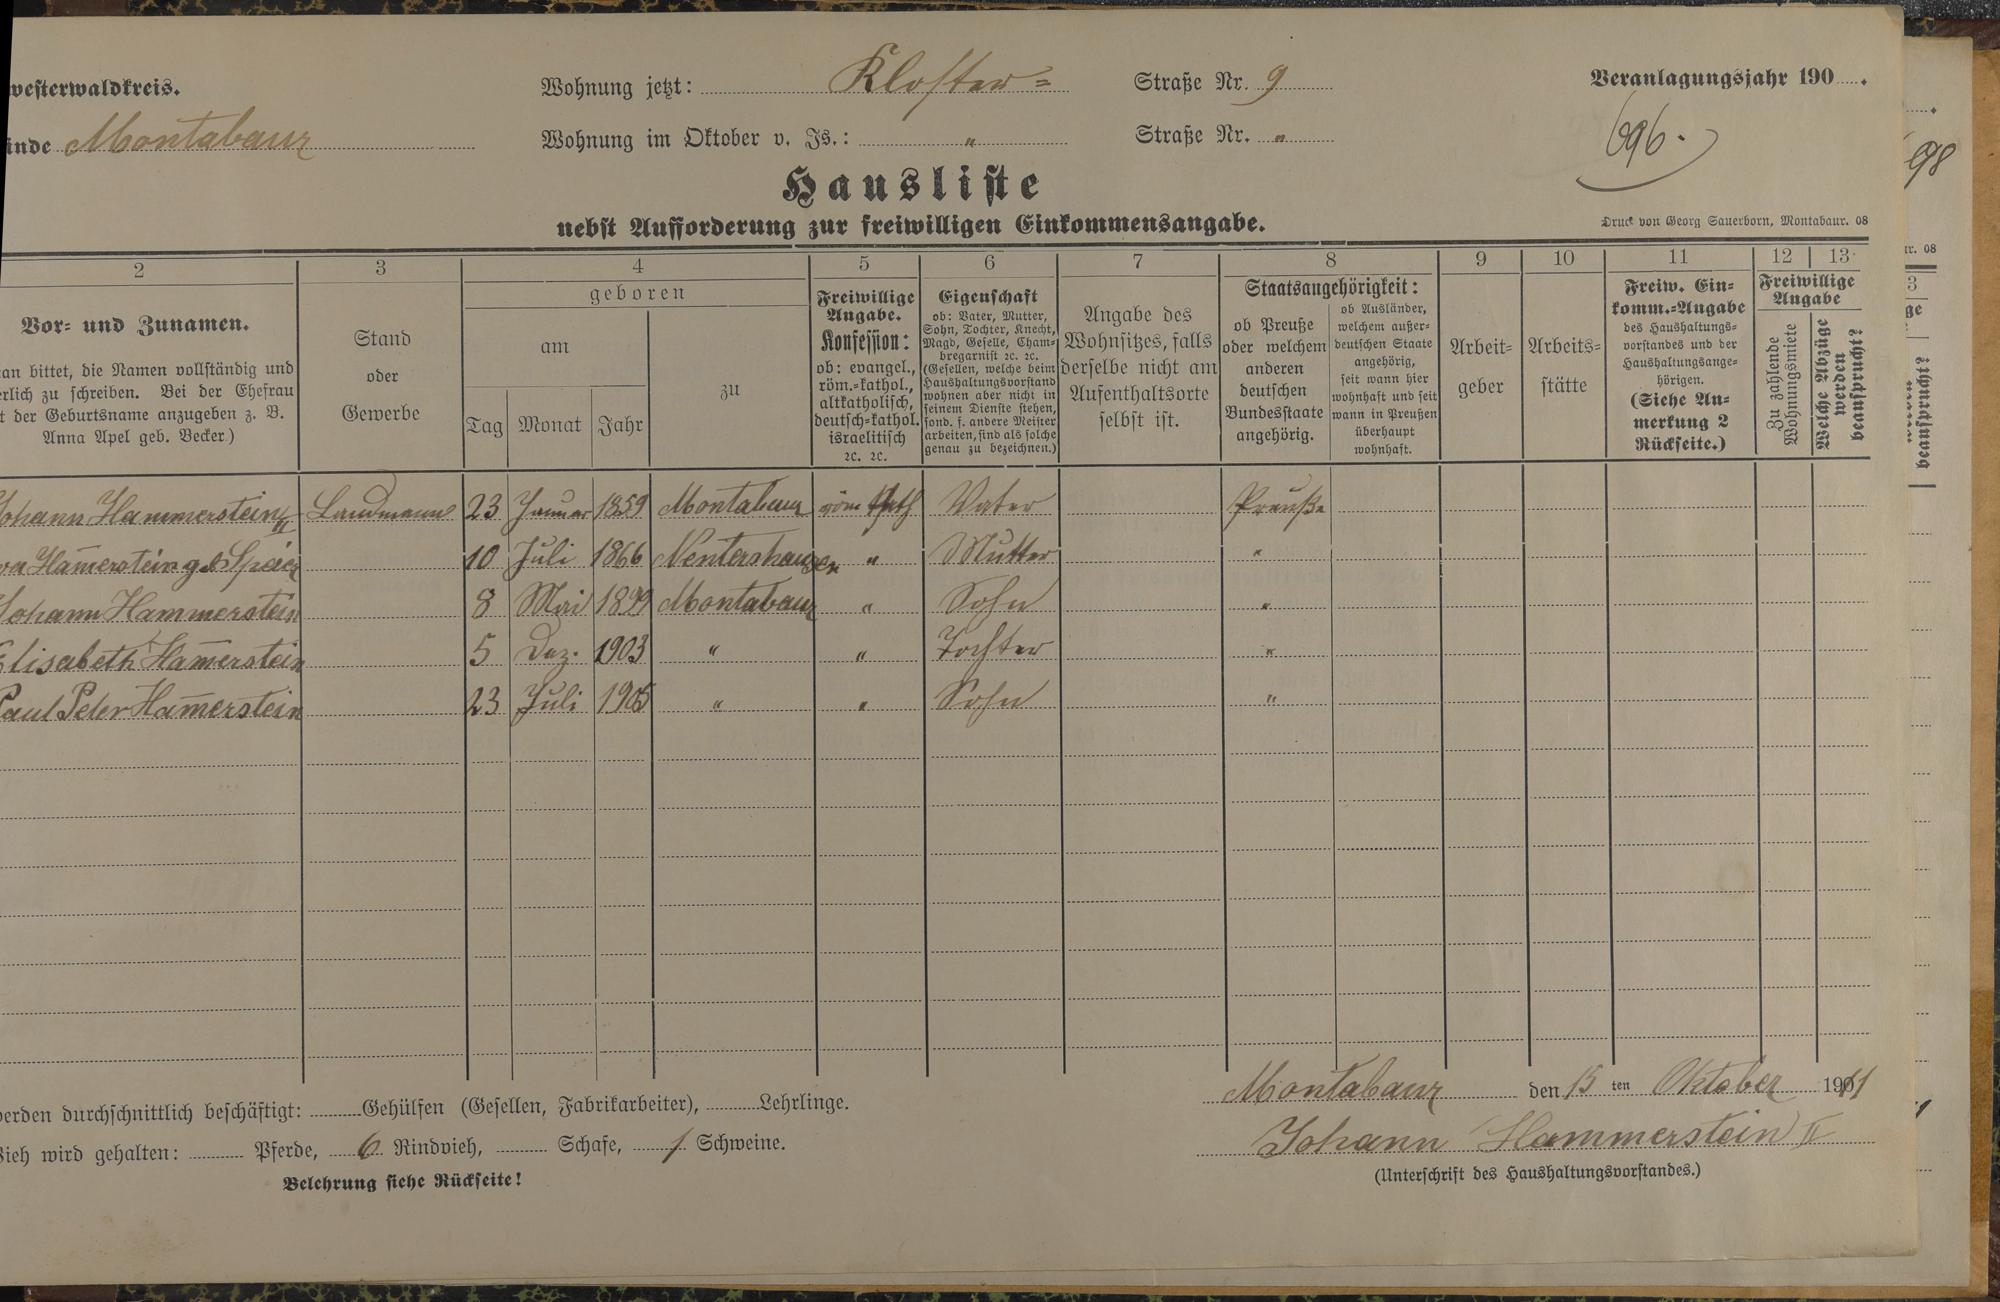 westerwaldkreis.
Wohnung jetzt: Kloster=
Straße Nr. 9
Veranlagungsjahr 190 .
inde Montabaur
Wohnung im Oktober v. Js.: "
Straße Nr. "
696.
98
Hausliste
nebst Aufforderung zur freiwilligen Einkommensangabe.
Druck von Georg Sauerborn, Montabaur. 08
ur. 08
2 3 4 5 6 7 8 9 10 11 12 13
Vor= und Zunamen.
an bittet, die Namen vollständig und
rlich zu schreiben. Bei der Ehefrau
t der Geburtsname anzugeben z. B.
Anna Apel geb. Becker.)
Stand
oder
Gewerbe
geboren
am
Tag Monat Jahr
zu
Freiwillige
Angabe.
Konfession:
ob: evangel.,
röm.=kathol.,
altkatholisch,
deutsch=kathol.
israelitisch
2c. 2c.
Eigenschaft
ob: Vater, Mutter,
Sohn, Tochter, Knecht,
Magd, Geselle, Cham=
bregarnist 2c. 2c.
(Gesellen, welche beim
Haushaltungsvorstand
wohnen aber nicht in
seinem Dienste stehen,
sond. f. andere Meister
arbeiten, sind als solche
genau zu bezeichnen.)
Angabe des
Wohnsitzes, falls
derselbe nicht am
Aufenthaltsorte
selbst ist.
Staatsangehörigkeit:
ob Preuße
oder welchem
anderen
deutschen
Bundesstaate
angehörig.
ob Ausländer,
welchem außer=
deutschen Staate
angehörig,
seit wann hier
wohnhaft und seit
wann in Preußen
überhaupt
wohnhaft.
Arbeit=
geber
Arbeits=
stätte
Freiw. Ein=
komm.=Angabe
des Haushaltungs=
vorstandes und der
Haushaltungsange=
hörigen.
(Siehe An=
merkung 2
Rückseite.)
Freiwillige
Angabe
Zu zahlende
Wohnungsmiete
Welche Abzüge
werden
beansprucht?
3
ge
beansprucht?
Johann Hammerstein II Landmann 23 Januar 1859 Montabaur röm Kath Vater Preuße
va Ham̄erstein geb Speier 10 Juli 1866 Nentershausen " Mutter "
Johann Hammerstein 8 Mai 1899 Montabaur " Sohn "
Elisabeth Ham̄erstein 5 Dez. 1903 " " Tochter "
Paul Peter Ham̄erstein 23 Juli 1905 " " Sohn "
Montabaur den 15 ten Oktober 1911
erden durchschnittlich beschäftigt: Gehülfen (Gesellen, Fabrikarbeiter), Lehrlinge.
Johann Hammerstein II
Vieh wird gehalten: Pferde, 6 Rindvieh, Schafe, 1 Schweine.
(Unterschrift des Haushaltungsvorstandes.)
Belehrung siehe Rückseite!